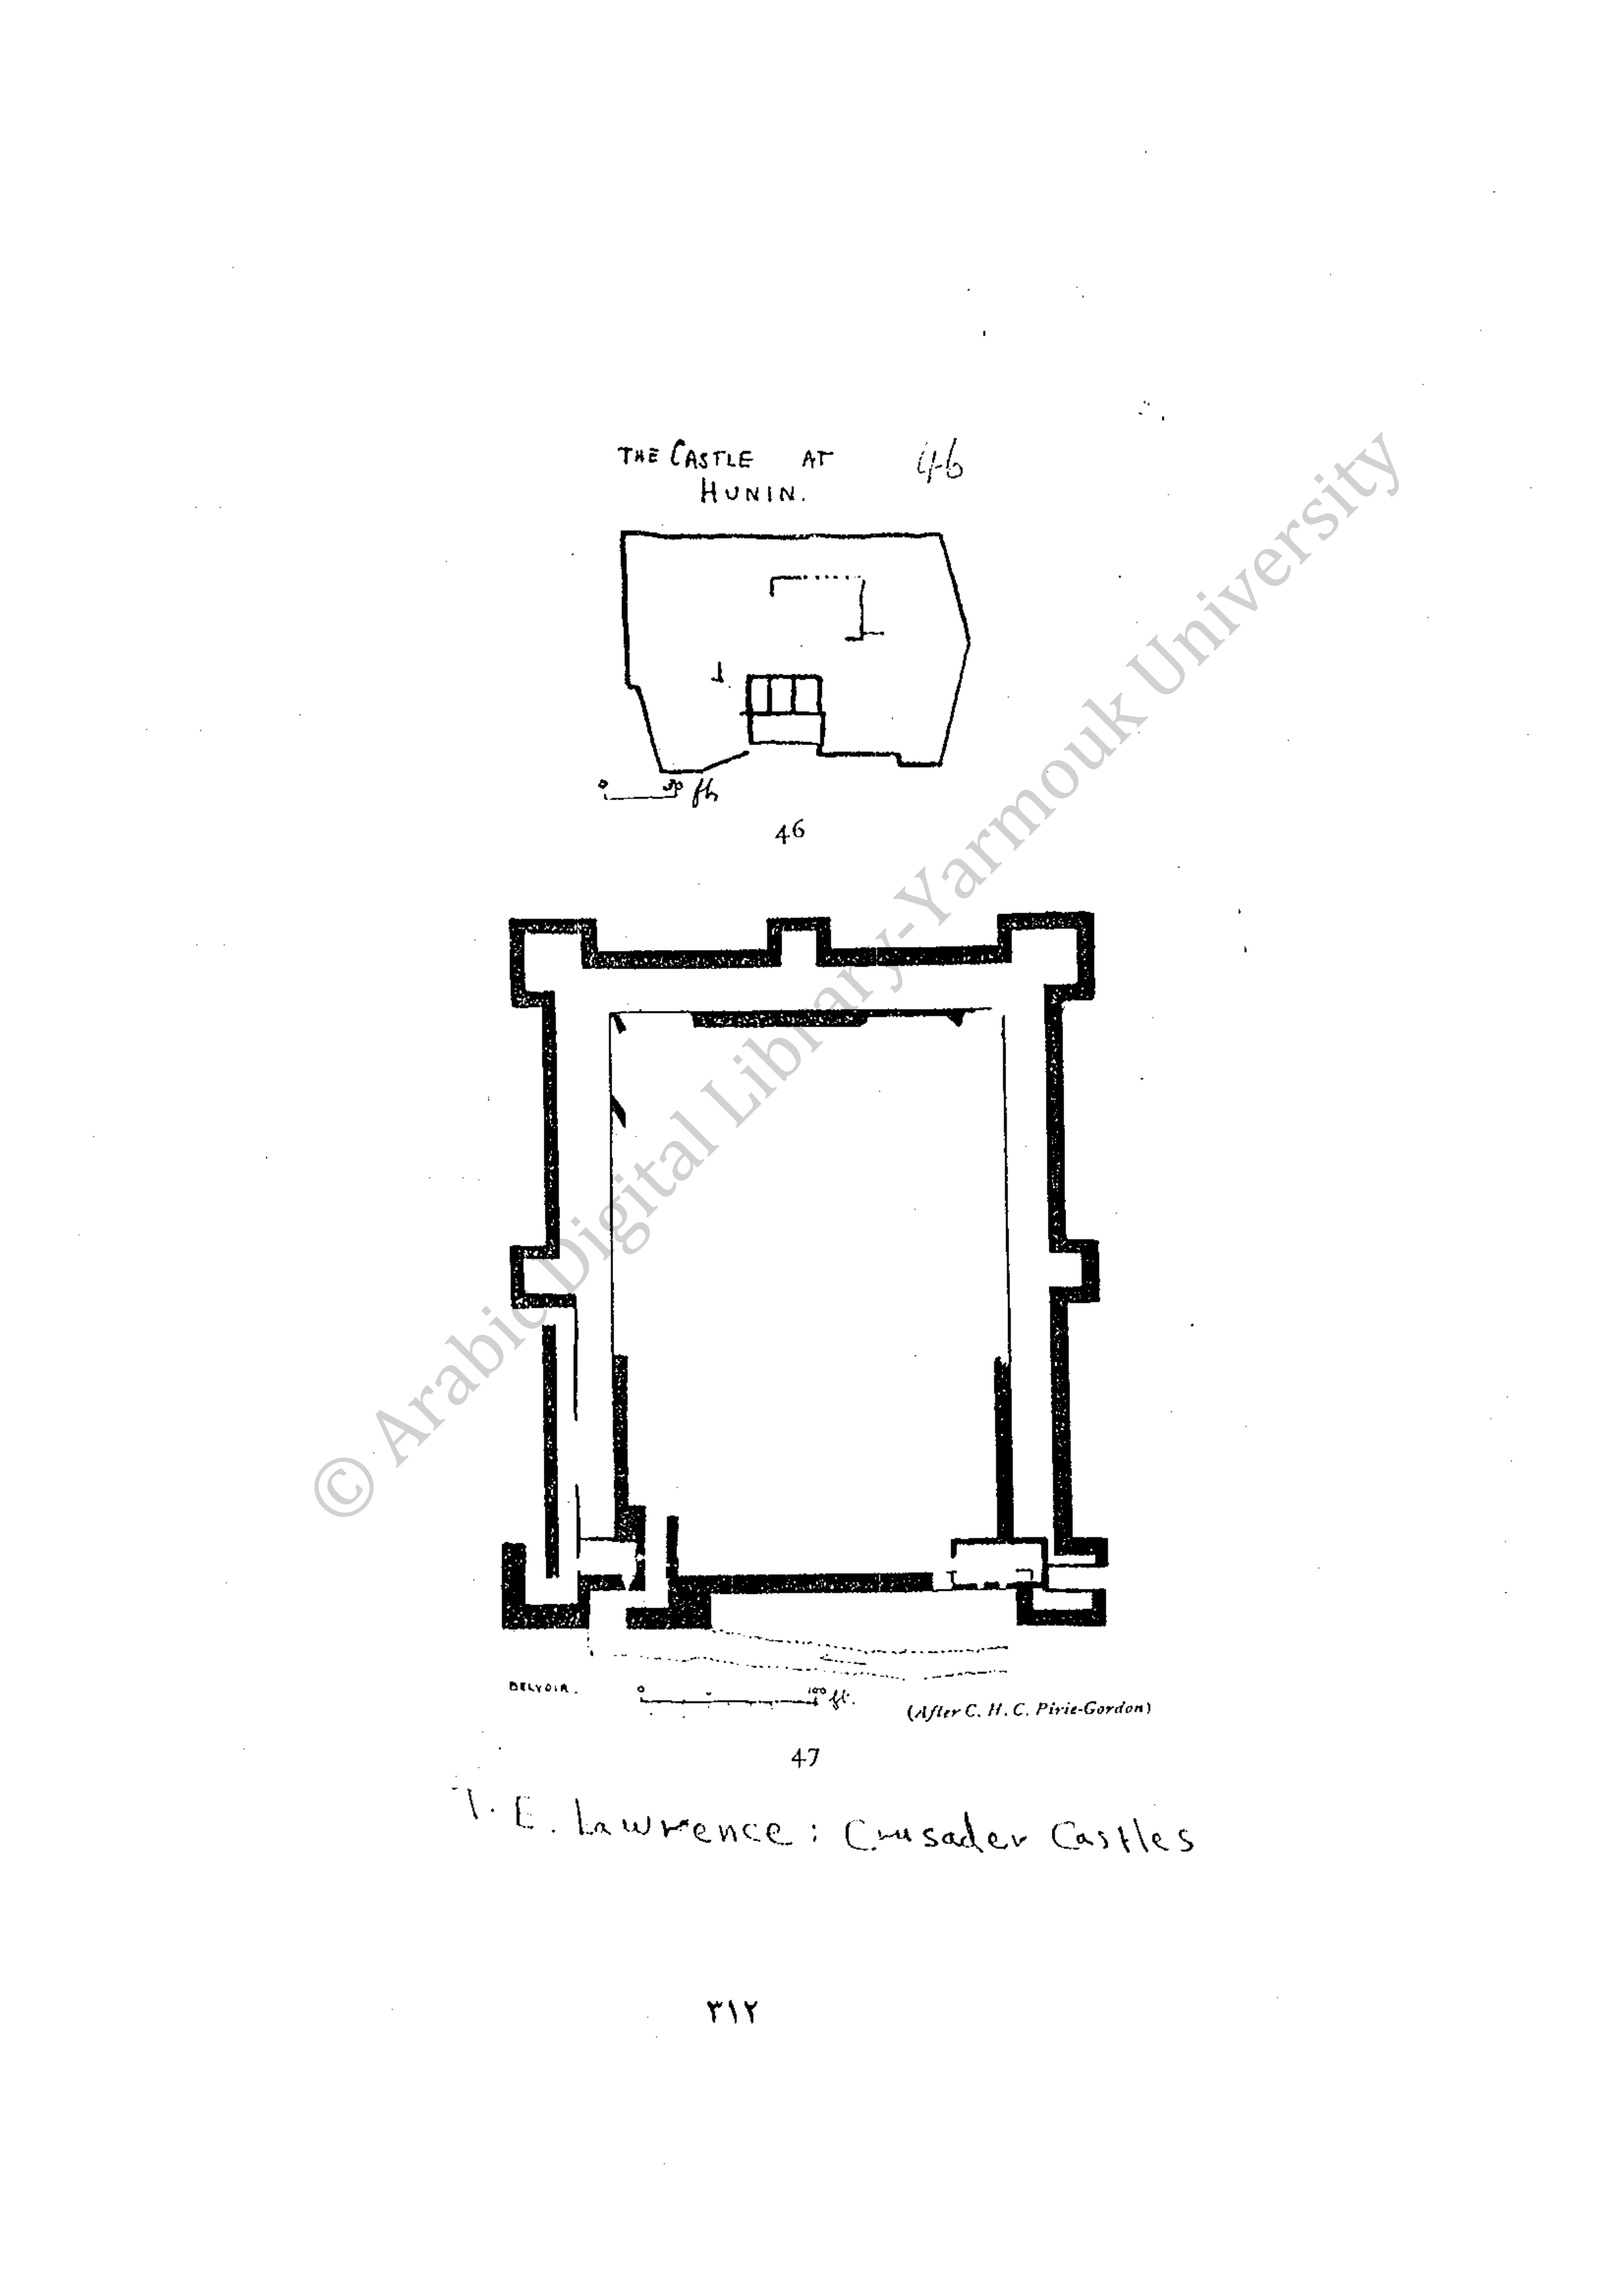 THE CASTLE AT 46
HUNIN.
0 50 ft
46
BELVOIR. 0 100 ft.
(After C. H. C. Pirie-Gordon)
47
T. E. Lawrence: Crusader Castles
٣١٢
© Arabic Digital Library-Yarmouk University